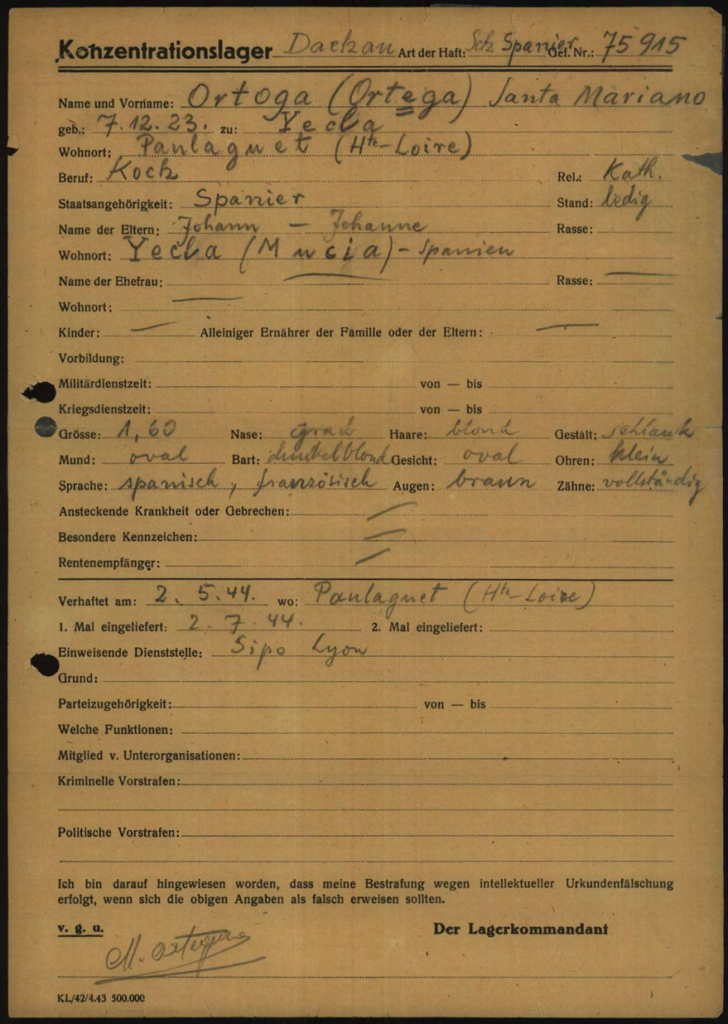 Konzentrationslager Dachau Art der Haft: Sch Spanier Gef. Nr.: 75915
Name und Vorname: Ortoga (Ortega) Santa Mariano
geb.: 7.12.23. zu: Yecla
Wohnort: Paulaguet (Hte-Loire)
Beruf: Koch Rel.: Kath.
Staatsangehörigkeit: Spanier Stand: ledig
Name der Eltern: Johann – Johanne Rasse:
Wohnort: Yecla (Mucia) - Spanien
Name der Ehefrau: — Rasse: —
Wohnort: —
Kinder: — Alleiniger Ernährer der Familie oder der Eltern: —
Vorbildung:
Militärdienstzeit: von — bis
Kriegsdienstzeit: von — bis
Grösse: 1,60 Nase: grad Haare: blond Gestalt: schlank
Mund: oval Bart: dunkelblond Gesicht: oval Ohren: klein
Sprache: spanisch, französisch Augen: braun Zähne: vollständig
Ansteckende Krankheit oder Gebrechen: —
Besondere Kennzeichen: —
Rentenempfänger: —
Verhaftet am: 2.5.44. wo: Paulaguet (Hte-Loire)
1. Mal eingeliefert: 2.7.44. 2. Mal eingeliefert:
Einweisende Dienststelle: Sipo Lyon
Grund:
Parteizugehörigkeit: von — bis
Welche Funktionen:
Mitglied v. Unterorganisationen:
Kriminelle Vorstrafen:
Politische Vorstrafen:
Ich bin darauf hingewiesen worden, dass meine Bestrafung wegen intellektueller Urkundenfälschung
erfolgt, wenn sich die obigen Angaben als falsch erweisen sollten.
v. g. u. Der Lagerkommandant
M. Ortega
KL/42/4.43 500.000